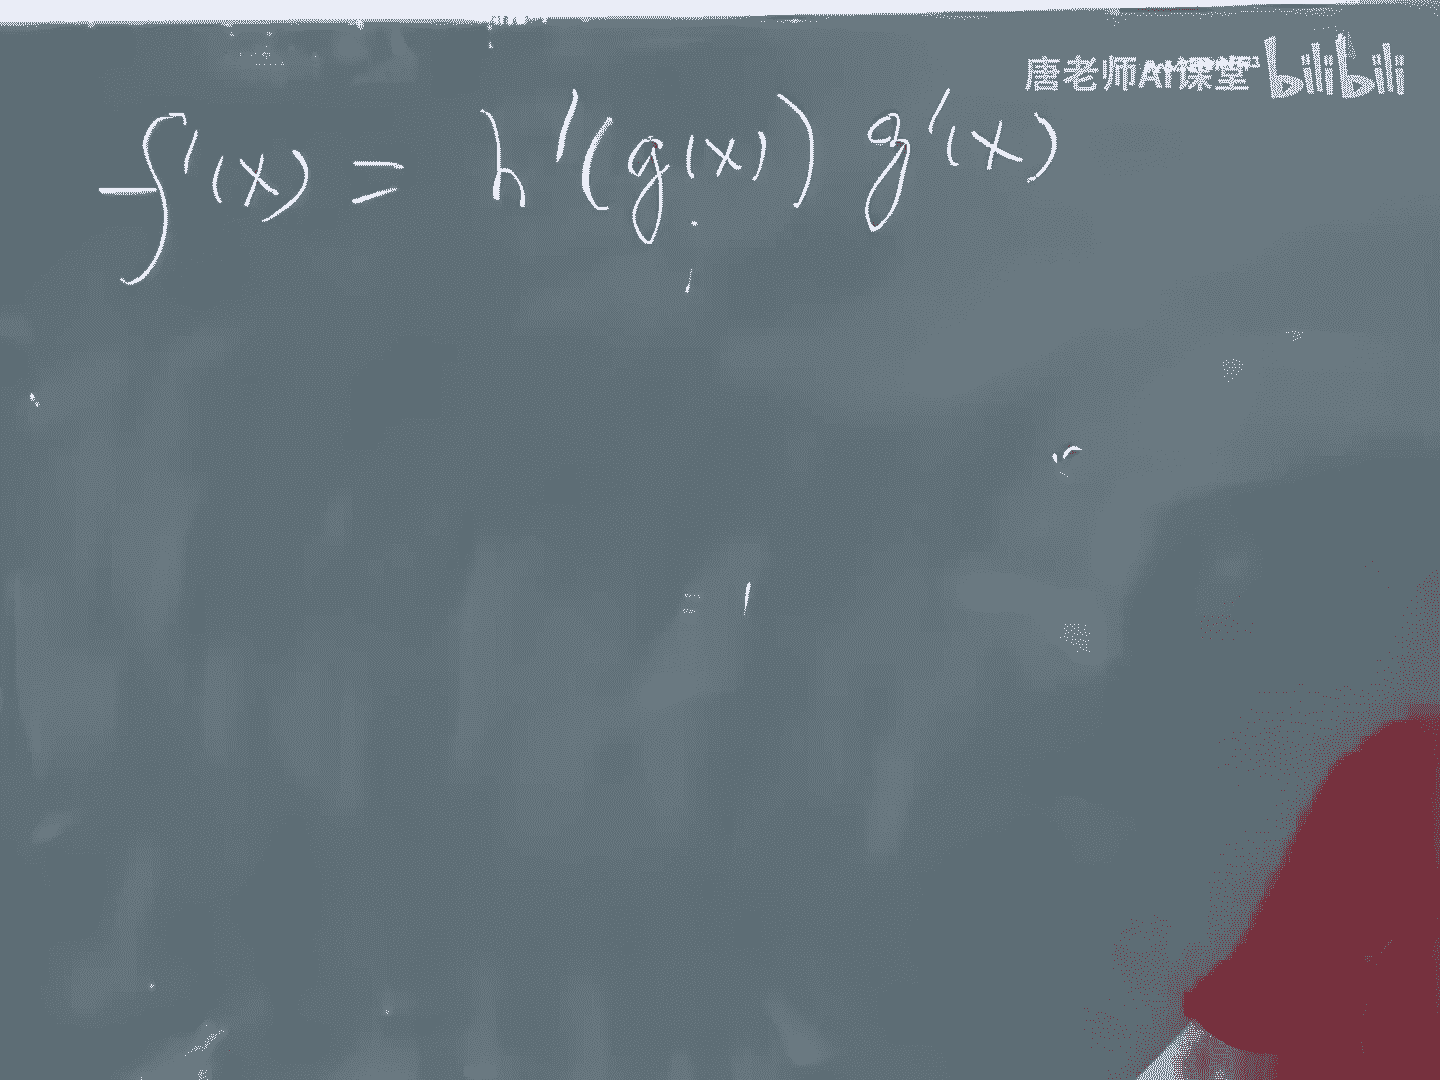 唐老师AI课堂 bilibili
f'(x) = h'(g(x)) g'(x)